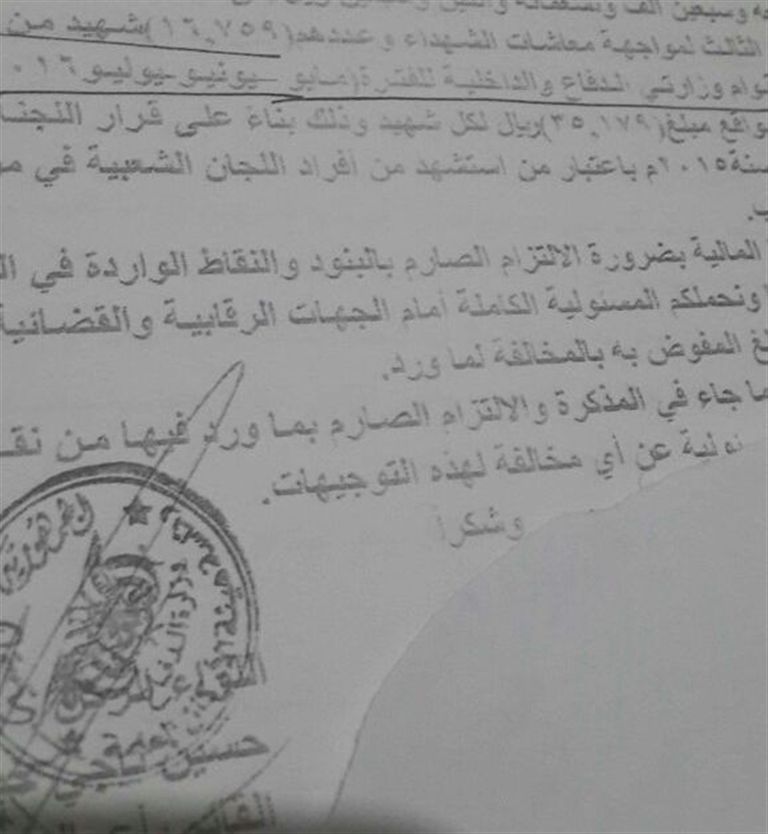 وسبعين الف وتسعمائة واثنين
الثالث لمواجهة معاشات الشهداء وعددهم(١٦,٧٥٩)شهيد من
قوام وزارتي الدفاع والداخلية للفترة(مايو -يونيو-يوليو ٢٠١٦
بواقع مبلغ(٣٥,١٧٩)ريال لكل شهيد وذلك بناءً على قرار اللجنة
لسنة٢٠١٥م باعتبار من استشهد من أفراد اللجان الشعبية في
المالية بضرورة الالتزام الصارم بالبنود والنقاط الواردة في
ونحملكم المسئولية الكاملة أمام الجهات الرقابية والقضائية
المفوض به بالمخالفة لما ورد.
ما جاء في المذكرة والالتزام الصارم بما ورد فيها من
عن أي مخالفة لهذه التوجيهات.
وشكراً
الجمهورية
وزارة الدفاع
حسين ناجي